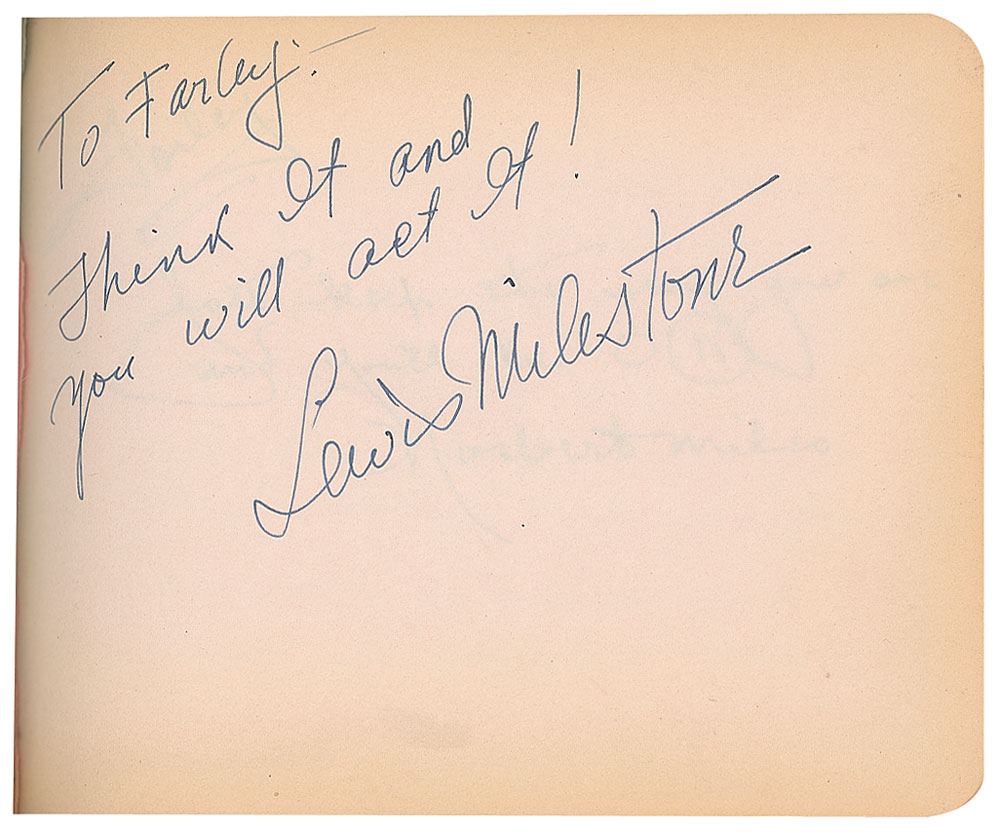 To Farley:—
Think It and
you will act It!
Lewis Milestone